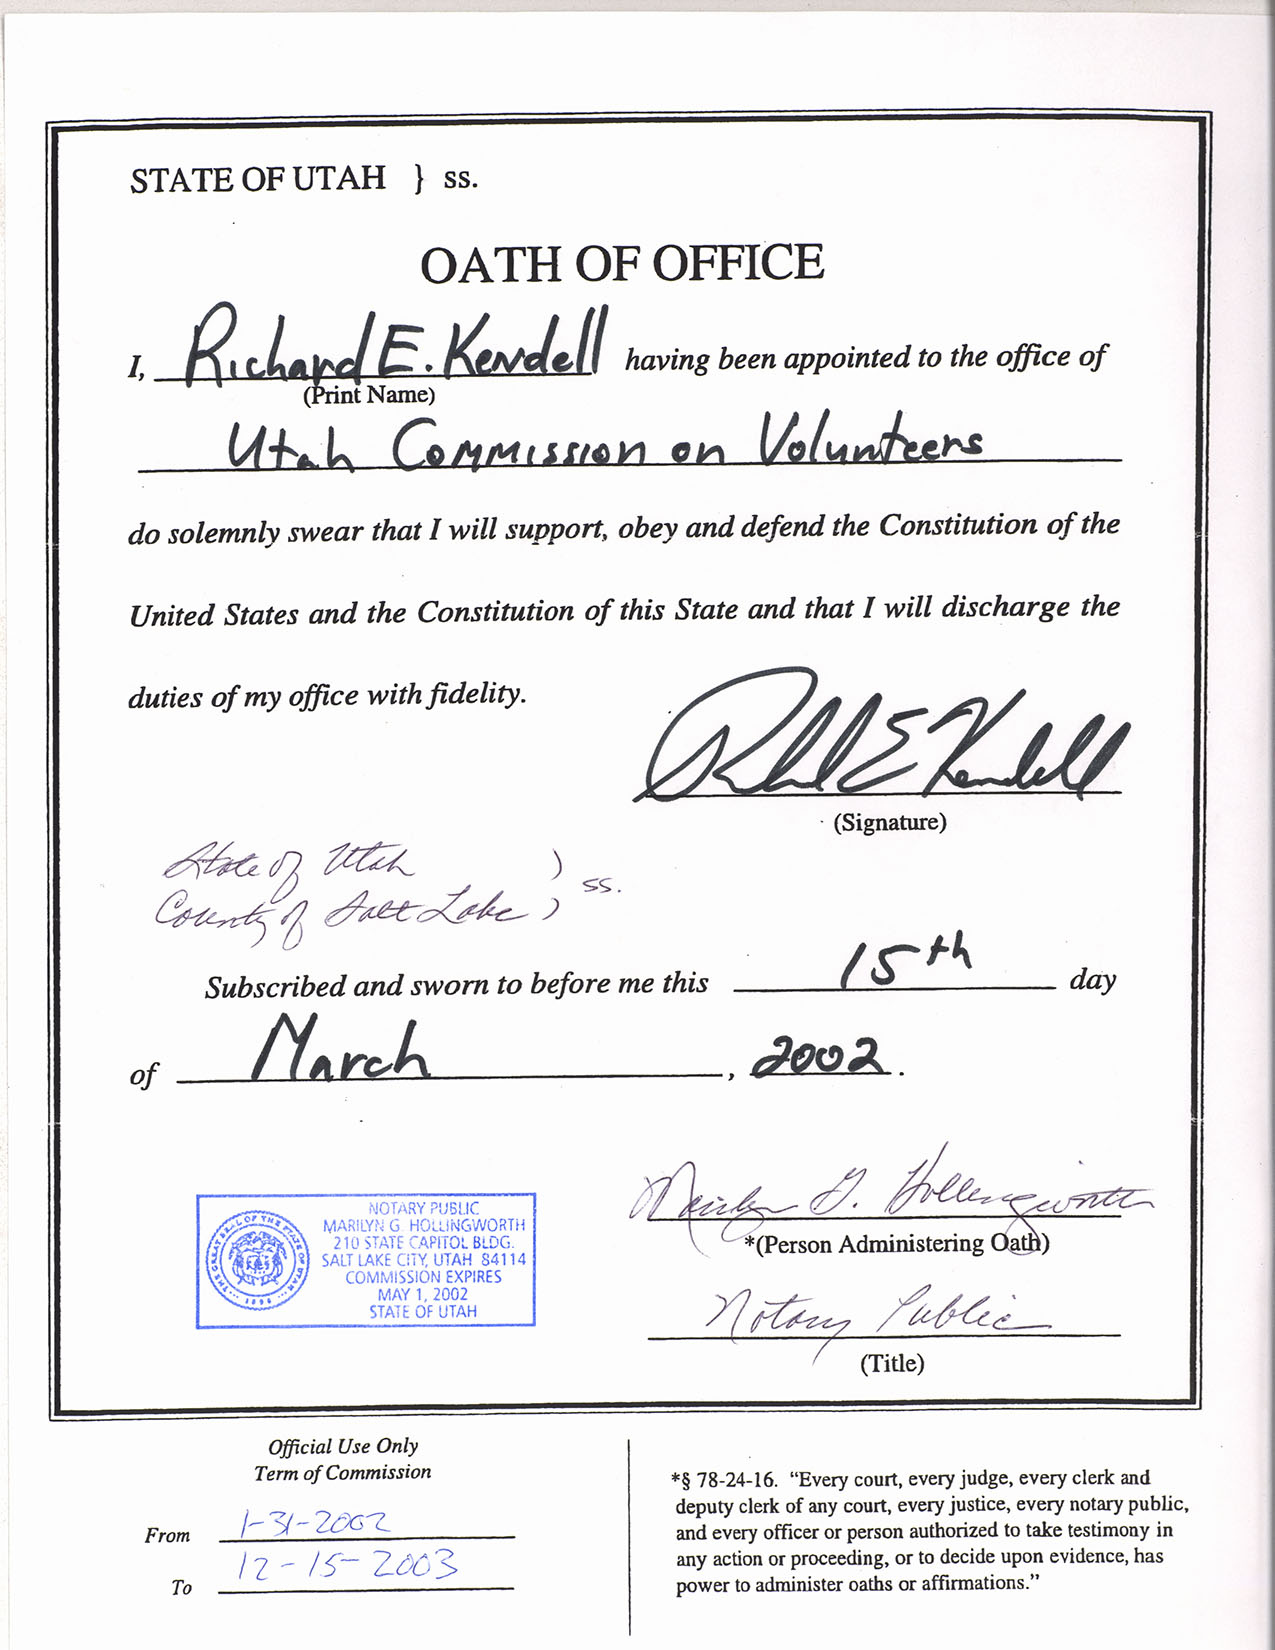 STATE OF UTAH } ss.
OATH OF OFFICE
I, Richard E. Kendell having been appointed to the office of
(Print Name)
Utah Commission on Volunteers
do solemnly swear that I will support, obey and defend the Constitution of the
United States and the Constitution of this State and that I will discharge the
duties of my office with fidelity.
Richard E Kendell
(Signature)
State of Utah )
County of Salt Lake ) ss.
Subscribed and sworn to before me this 15th day
of March, 2002.
Marilyn G. Hollingworth
*(Person Administering Oath)
Notary Public
(Title)
THE GREAT SEAL OF THE STATE OF UTAH
1896
NOTARY PUBLIC
MARILYN G. HOLLINGWORTH
210 STATE CAPITOL BLDG.
SALT LAKE CITY, UTAH 84114
COMMISSION EXPIRES
MAY 1, 2002
STATE OF UTAH
Official Use Only
Term of Commission
From 1-31-2002
To 12-15-2003
*§ 78-24-16. “Every court, every judge, every clerk and
deputy clerk of any court, every justice, every notary public,
and every officer or person authorized to take testimony in
any action or proceeding, or to decide upon evidence, has
power to administer oaths or affirmations.”